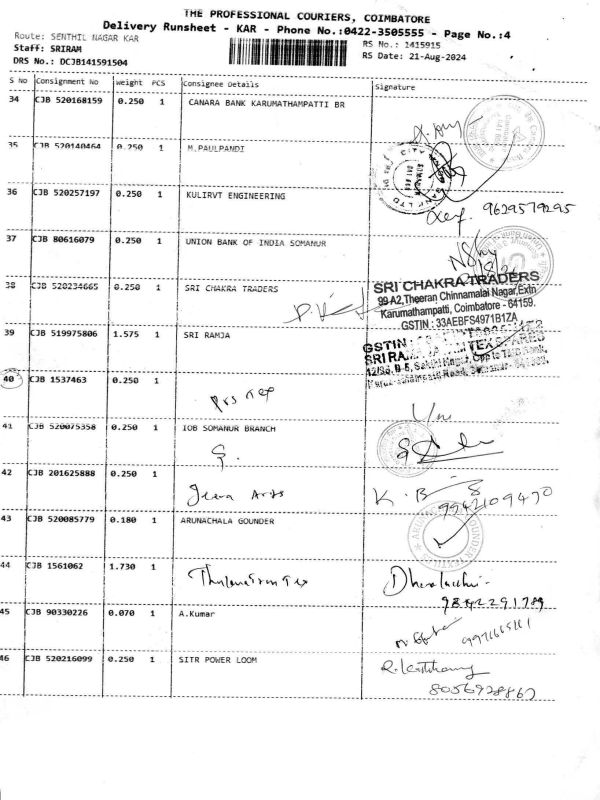 THE PROFESSIONAL COURIERS, COIMBATORE
Delivery Runsheet - KAR - Phone No.:0422-3505555 - Page No.:4
Route: SENTHIL NAGAR KAR
RS No.: 1415915
Staff: SRIRAM
RS Date: 21-Aug-2024
DRS No.: DCJB141591504
S No Consignment No weight PCS Consignee Details Signature
34 CJB 520168159 0.250 1 CANARA BANK KARUMATHAMPATTI BR
35 CJB 520140464 0.250 1 M.PAULPANDI
36 CJB 520257197 0.250 1 KULIRVT ENGINEERING
9629579295
37 CJB 80616079 0.250 1 UNION BANK OF INDIA SOMANUR
38 CJB 520234665 0.250 1 SRI CHAKRA TRADERS
SRI CHAKRA TRADERS
99 A2,Theeran Chinnamalai Nagar,Extn
Karumathampatti, Coimbatore - 64159.
GSTIN : 33AEBFS4971B1ZA
39 CJB 519975806 1.575 1 SRI RAMJA
GSTIN
SRI
40 CJB 1537463 0.250 1
41 CJB 520075358 0.250 1 IOB SOMANUR BRANCH
42 CJB 201625888 0.250 1
Jeeva Arts
K. B
9942109470
43 CJB 520085779 0.180 1 ARUNACHALA GOUNDER
44 CJB 1561062 1.730 1
9842291789
45 CJB 90330226 0.070 1 A.Kumar
46 CJB 520216099 0.250 1 SITR POWER LOOM
8056928867